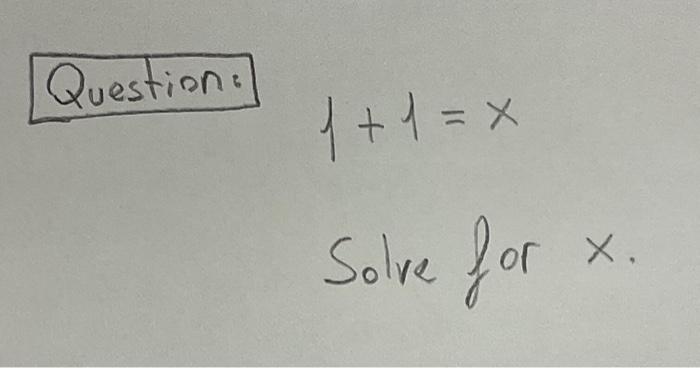 Question:
1 + 1 = x
Solve for x.